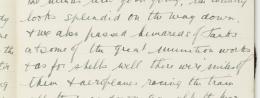 looks splendid on the way down.
& we also passed hundreds of tanks
at some of the great munition works
& as for shells well there were miles of
them & aeroplanes racing the train